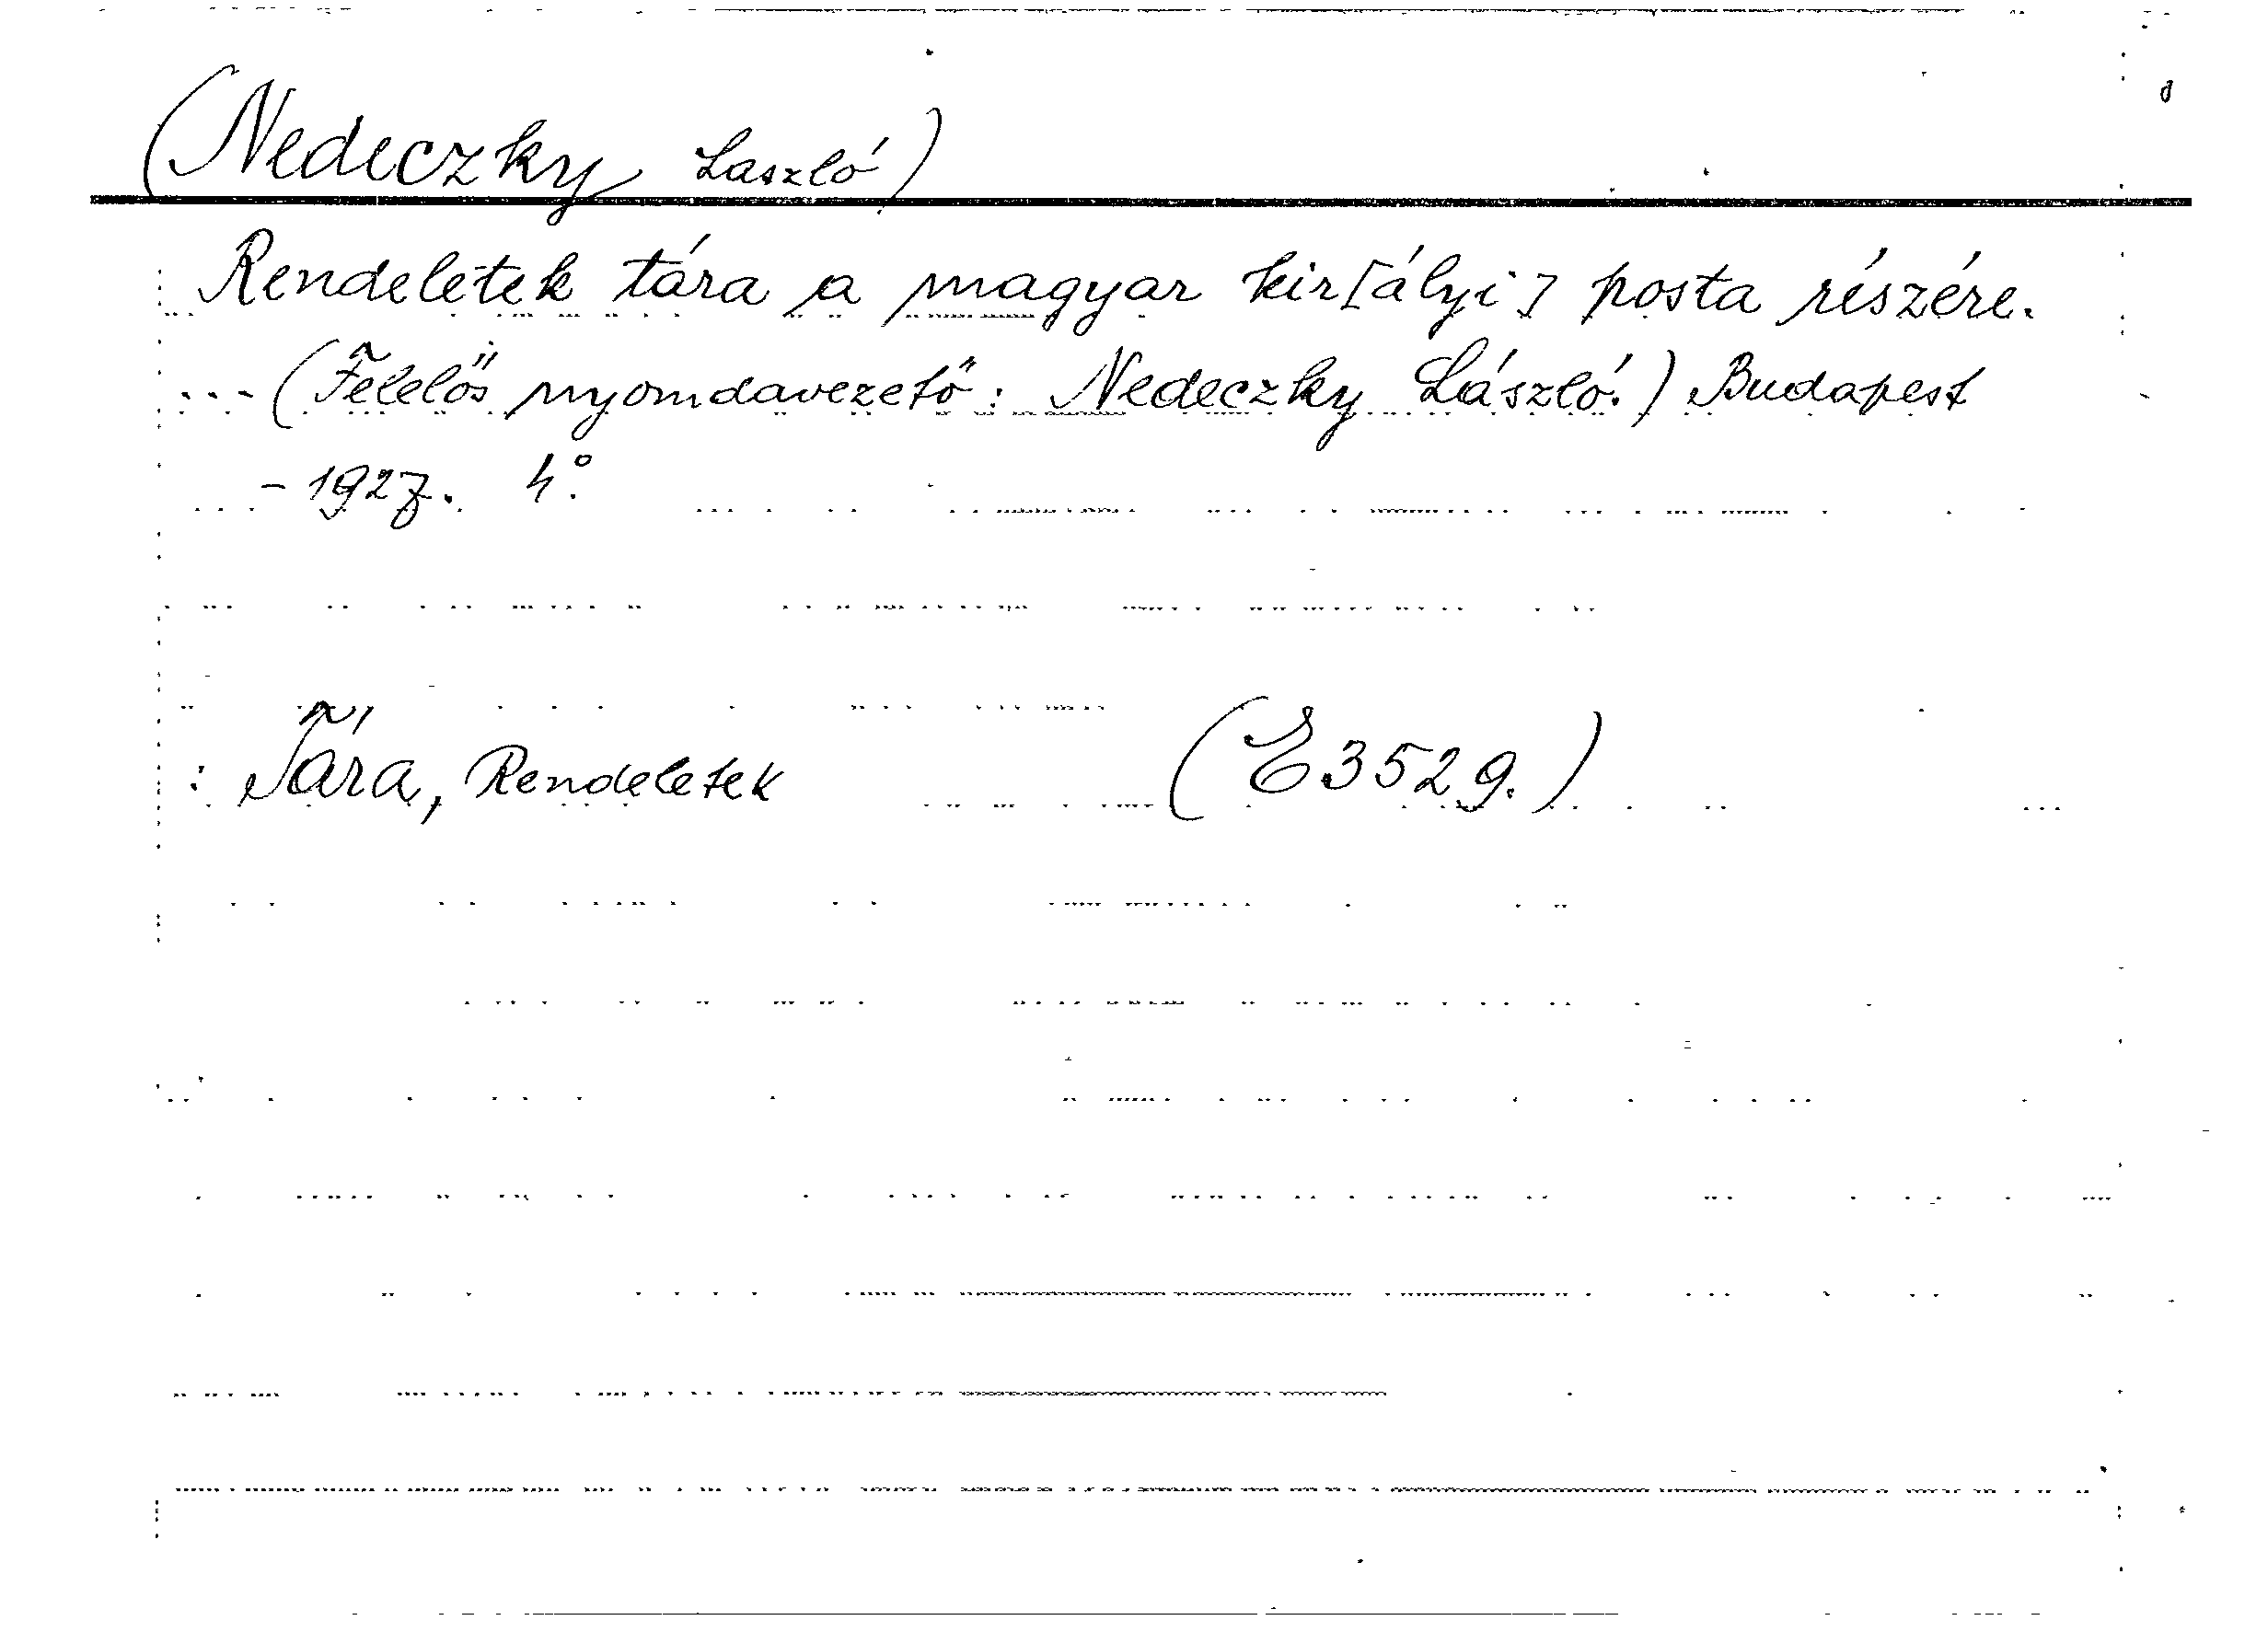 (Nedeczky László)
Rendeletek tára a magyar kir[ályi] posta részére.
... (Felelős nyomdavezető: Nedeczky László.) Budapest
- 1927. 4°.
: Tára, Rendeletek (E3529.)